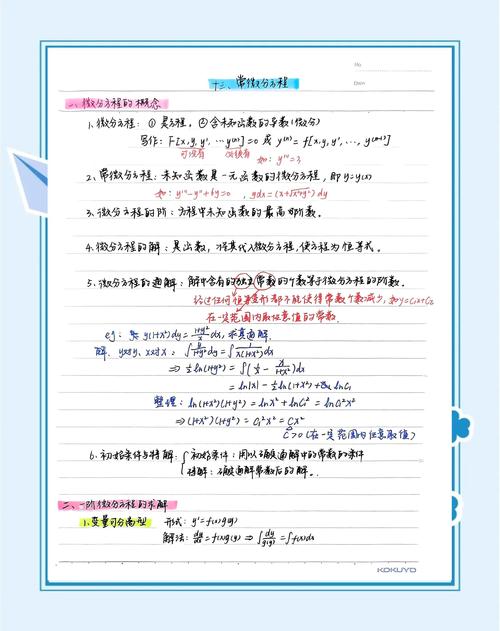 No
Date
十三、常微分方程
一、微分方程的概念
1、微分方程：① 是方程，② 含未知函数的导数（微分）
写作：F[x, y, y', …, y⁽ⁿ⁾]=0 或 y⁽ⁿ⁾=f[x, y, y', …, y⁽ⁿ⁻¹⁾]
可没有 必须有 如：y'''=3
2、常微分方程：未知函数是一元函数的微分方程，即 y=y(x)
如：y'''-y''+6y=0，ydx=(x+√(x²+y²))dy
3、微分方程的阶：方程中未知函数的最高阶导数。
4、微分方程的解：是函数，将其代入微分方程，使方程为恒等式。
5、微分方程的通解：解中含有的独立常数的个数等于微分方程的阶数。
经过任何恒等变形都不能使得常数个数减少，如y=C₁x+C₂
在一定范围内取任意值的常数
eg： y(1+x²)dy = (1+y²)/x dx，求其通解
解、y对y、x对x：∫ y/(1+y²) dy = ∫ 1/(x(1+x²)) dx
⇒ ½ln(1+y²) = ∫(1/x - x/(1+x²))dx
= ln|x| - ½ln(1+x²) + lnC₁
整理：ln(1+x²)(1+y²) = lnx² + lnC₁² = lnC₁²x²
⇒ (1+x²)(1+y²) = C₁²x² = Cx²
C>0（在一定范围内任意取值）
6、初始条件与特解：{初始条件：用以确定通解中的常数的条件
特解：确定通解常数后的解.
二、一阶微分方程的求解
1.变量可分离型 形式：y'=f(x)g(y)
解法：dy/dx = f(x)g(y) ⇒ ∫ dy/g(y) = ∫f(x)dx
KOKUYO